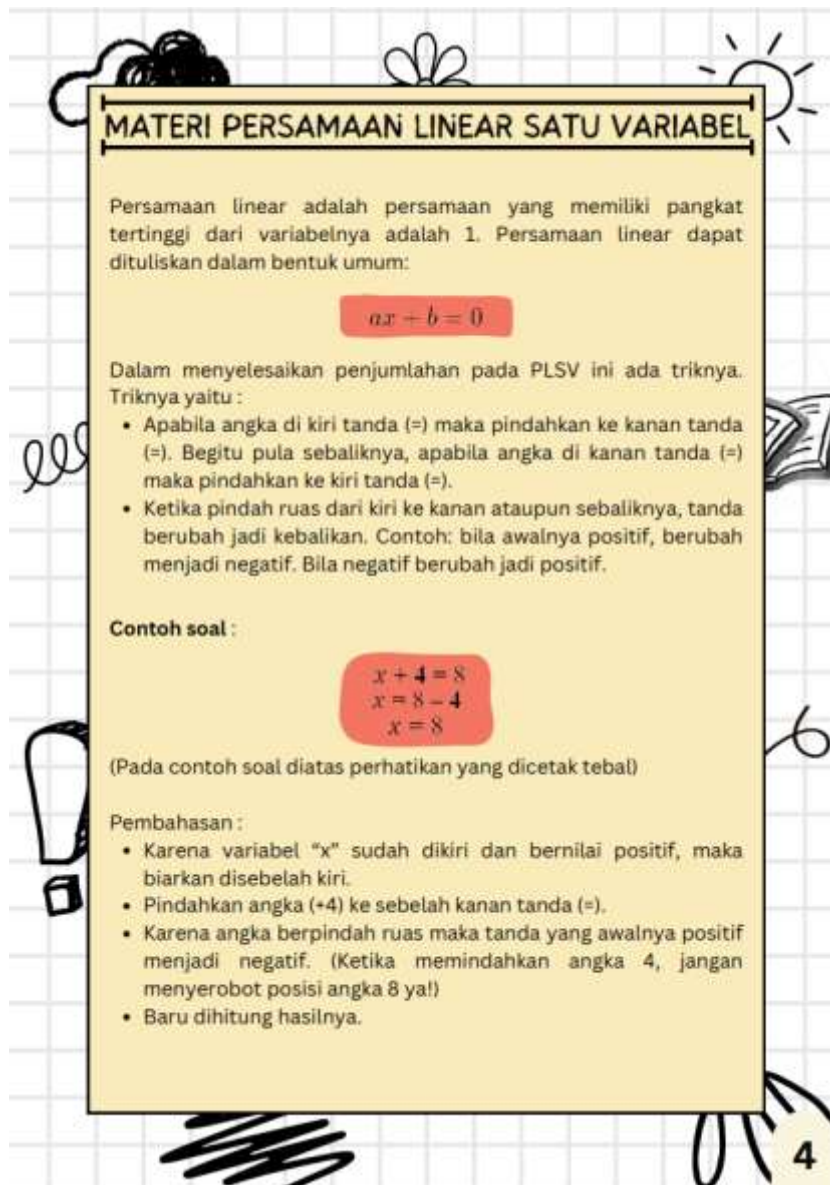 MATERI PERSAMAAN LINEAR SATU VARIABEL
Persamaan linear adalah persamaan yang memiliki pangkat
tertinggi dari variabelnya adalah 1. Persamaan linear dapat
dituliskan dalam bentuk umum:
ax + b = 0
Dalam menyelesaikan penjumlahan pada PLSV ini ada triknya.
Triknya yaitu :
• Apabila angka di kiri tanda (=) maka pindahkan ke kanan tanda
(=). Begitu pula sebaliknya, apabila angka di kanan tanda (=)
maka pindahkan ke kiri tanda (=).
• Ketika pindah ruas dari kiri ke kanan ataupun sebaliknya, tanda
berubah jadi kebalikan. Contoh: bila awalnya positif, berubah
menjadi negatif. Bila negatif berubah jadi positif.
Contoh soal :
x + 4 = 8
x = 8 – 4
x = 8
(Pada contoh soal diatas perhatikan yang dicetak tebal)
Pembahasan :
• Karena variabel “x” sudah dikiri dan bernilai positif, maka
biarkan disebelah kiri.
• Pindahkan angka (+4) ke sebelah kanan tanda (=).
• Karena angka berpindah ruas maka tanda yang awalnya positif
menjadi negatif. (Ketika memindahkan angka 4, jangan
menyerobot posisi angka 8 ya!)
• Baru dihitung hasilnya.
4